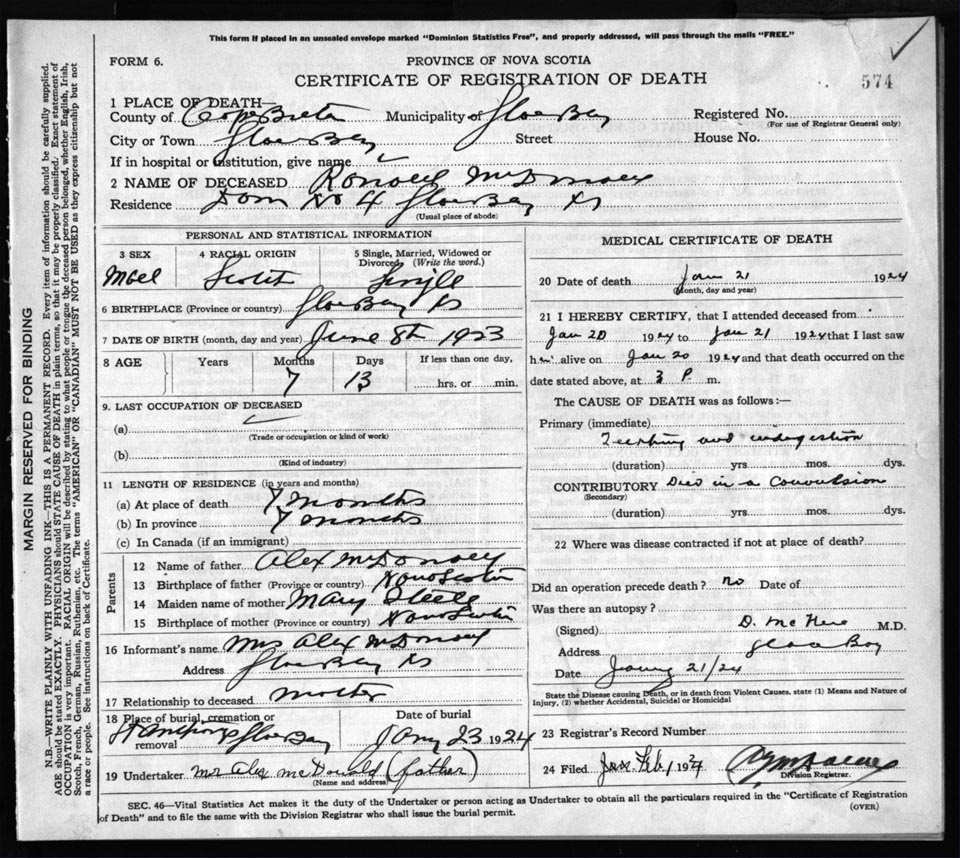 This form if placed in an unsealed envelope marked "Dominion Statistics Free", and properly addressed, will pass through the mails "FREE."
FORM 6.
PROVINCE OF NOVA SCOTIA
CERTIFICATE OF REGISTRATION OF DEATH
574
1 PLACE OF DEATH—
County of Cape Breton Municipality of Glace Bay Registered No.
(For use of Registrar General only)
City or Town Glace Bay Street House No.
If in hospital or institution, give name
2 NAME OF DECEASED Ronald McDonald
Residence Dom No 4 Glace Bay NS
(Usual place of abode)
PERSONAL AND STATISTICAL INFORMATION
3 SEX 4 RACIAL ORIGIN 5 Single, Married, Widowed or Divorced (Write the word.)
Mael Scotch Single
6 BIRTHPLACE (Province or country) Glace Bay NS
7 DATE OF BIRTH (month, day and year) June 8th 1923
8 AGE Years Months Days If less than one day,
7 13 hrs. or min.
9. LAST OCCUPATION OF DECEASED
(a)
(Trade or occupation or kind of work)
(b)
(Kind of industry)
11 LENGTH OF RESIDENCE (in years and months)
(a) At place of death 7 months
(b) In province 7 months
(c) In Canada (if an immigrant)
Parents
12 Name of father Alex McDonald
13 Birthplace of father (Province or country) Nova Scotia
14 Maiden name of mother Mary Steele
15 Birthplace of mother (Province or country) Nova Scotia
16 Informant's name Mrs Alex McDonald
Address Glace Bay NS
17 Relationship to deceased mother
18 Place of burial, cremation or removal St Anthonys Glace Bay
Date of burial Jany 23 1924
19 Undertaker Mr Alex McDonald (father)
(Name and address)
MEDICAL CERTIFICATE OF DEATH
20 Date of death Jan 21 1924
(Month, day and year)
21 I HEREBY CERTIFY, that I attended deceased from
Jan 20 1924 to Jan 21 1924 that I last saw
him alive on Jan 20 1924 and that death occurred on the
date stated above, at 3 P. m.
The CAUSE OF DEATH was as follows:—
Primary (immediate)
Teething and indigestion
(duration) yrs. mos. dys.
CONTRIBUTORY Died in a Convulsion
(Secondary)
(duration) yrs. mos. dys.
22 Where was disease contracted if not at place of death?
Did an operation precede death? no Date of
Was there an autopsy?
(Signed) D. M.D.
Address Glace Bay
Date 21/24
State the Disease causing Death, or in death from Violent Causes, state (1) Means and Nature of
Injury, (2) whether Accidental, Suicidal or Homicidal
23 Registrar's Record Number
24 Filed Feb 1 1924
Division Registrar.
SEC. 46—Vital Statistics Act makes it the duty of the Undertaker or person acting as Undertaker to obtain all the particulars required in the "Certificate of Registration
of Death" and to file the same with the Division Registrar who shall issue the burial permit.
(OVER)
MARGIN RESERVED FOR BINDING
N.B.—WRITE PLAINLY WITH UNFADING INK—THIS IS A PERMANENT RECORD. Every item of information should be carefully supplied.
AGE should be stated EXACTLY. PHYSICIANS should STATE CAUSE OF DEATH in plain terms, so that it may be properly classified. Exact statement of
OCCUPATION is very important. RACIAL ORIGIN will be described by stating to what people or tongue the deceased person belonged, whether English, Irish,
Scotch, French, German, Russian, Ruthenian, etc. The terms "AMERICAN" OR "CANADIAN" MUST NOT BE USED as they express citizenship but not
a race or people. See instructions on back of Certificate.